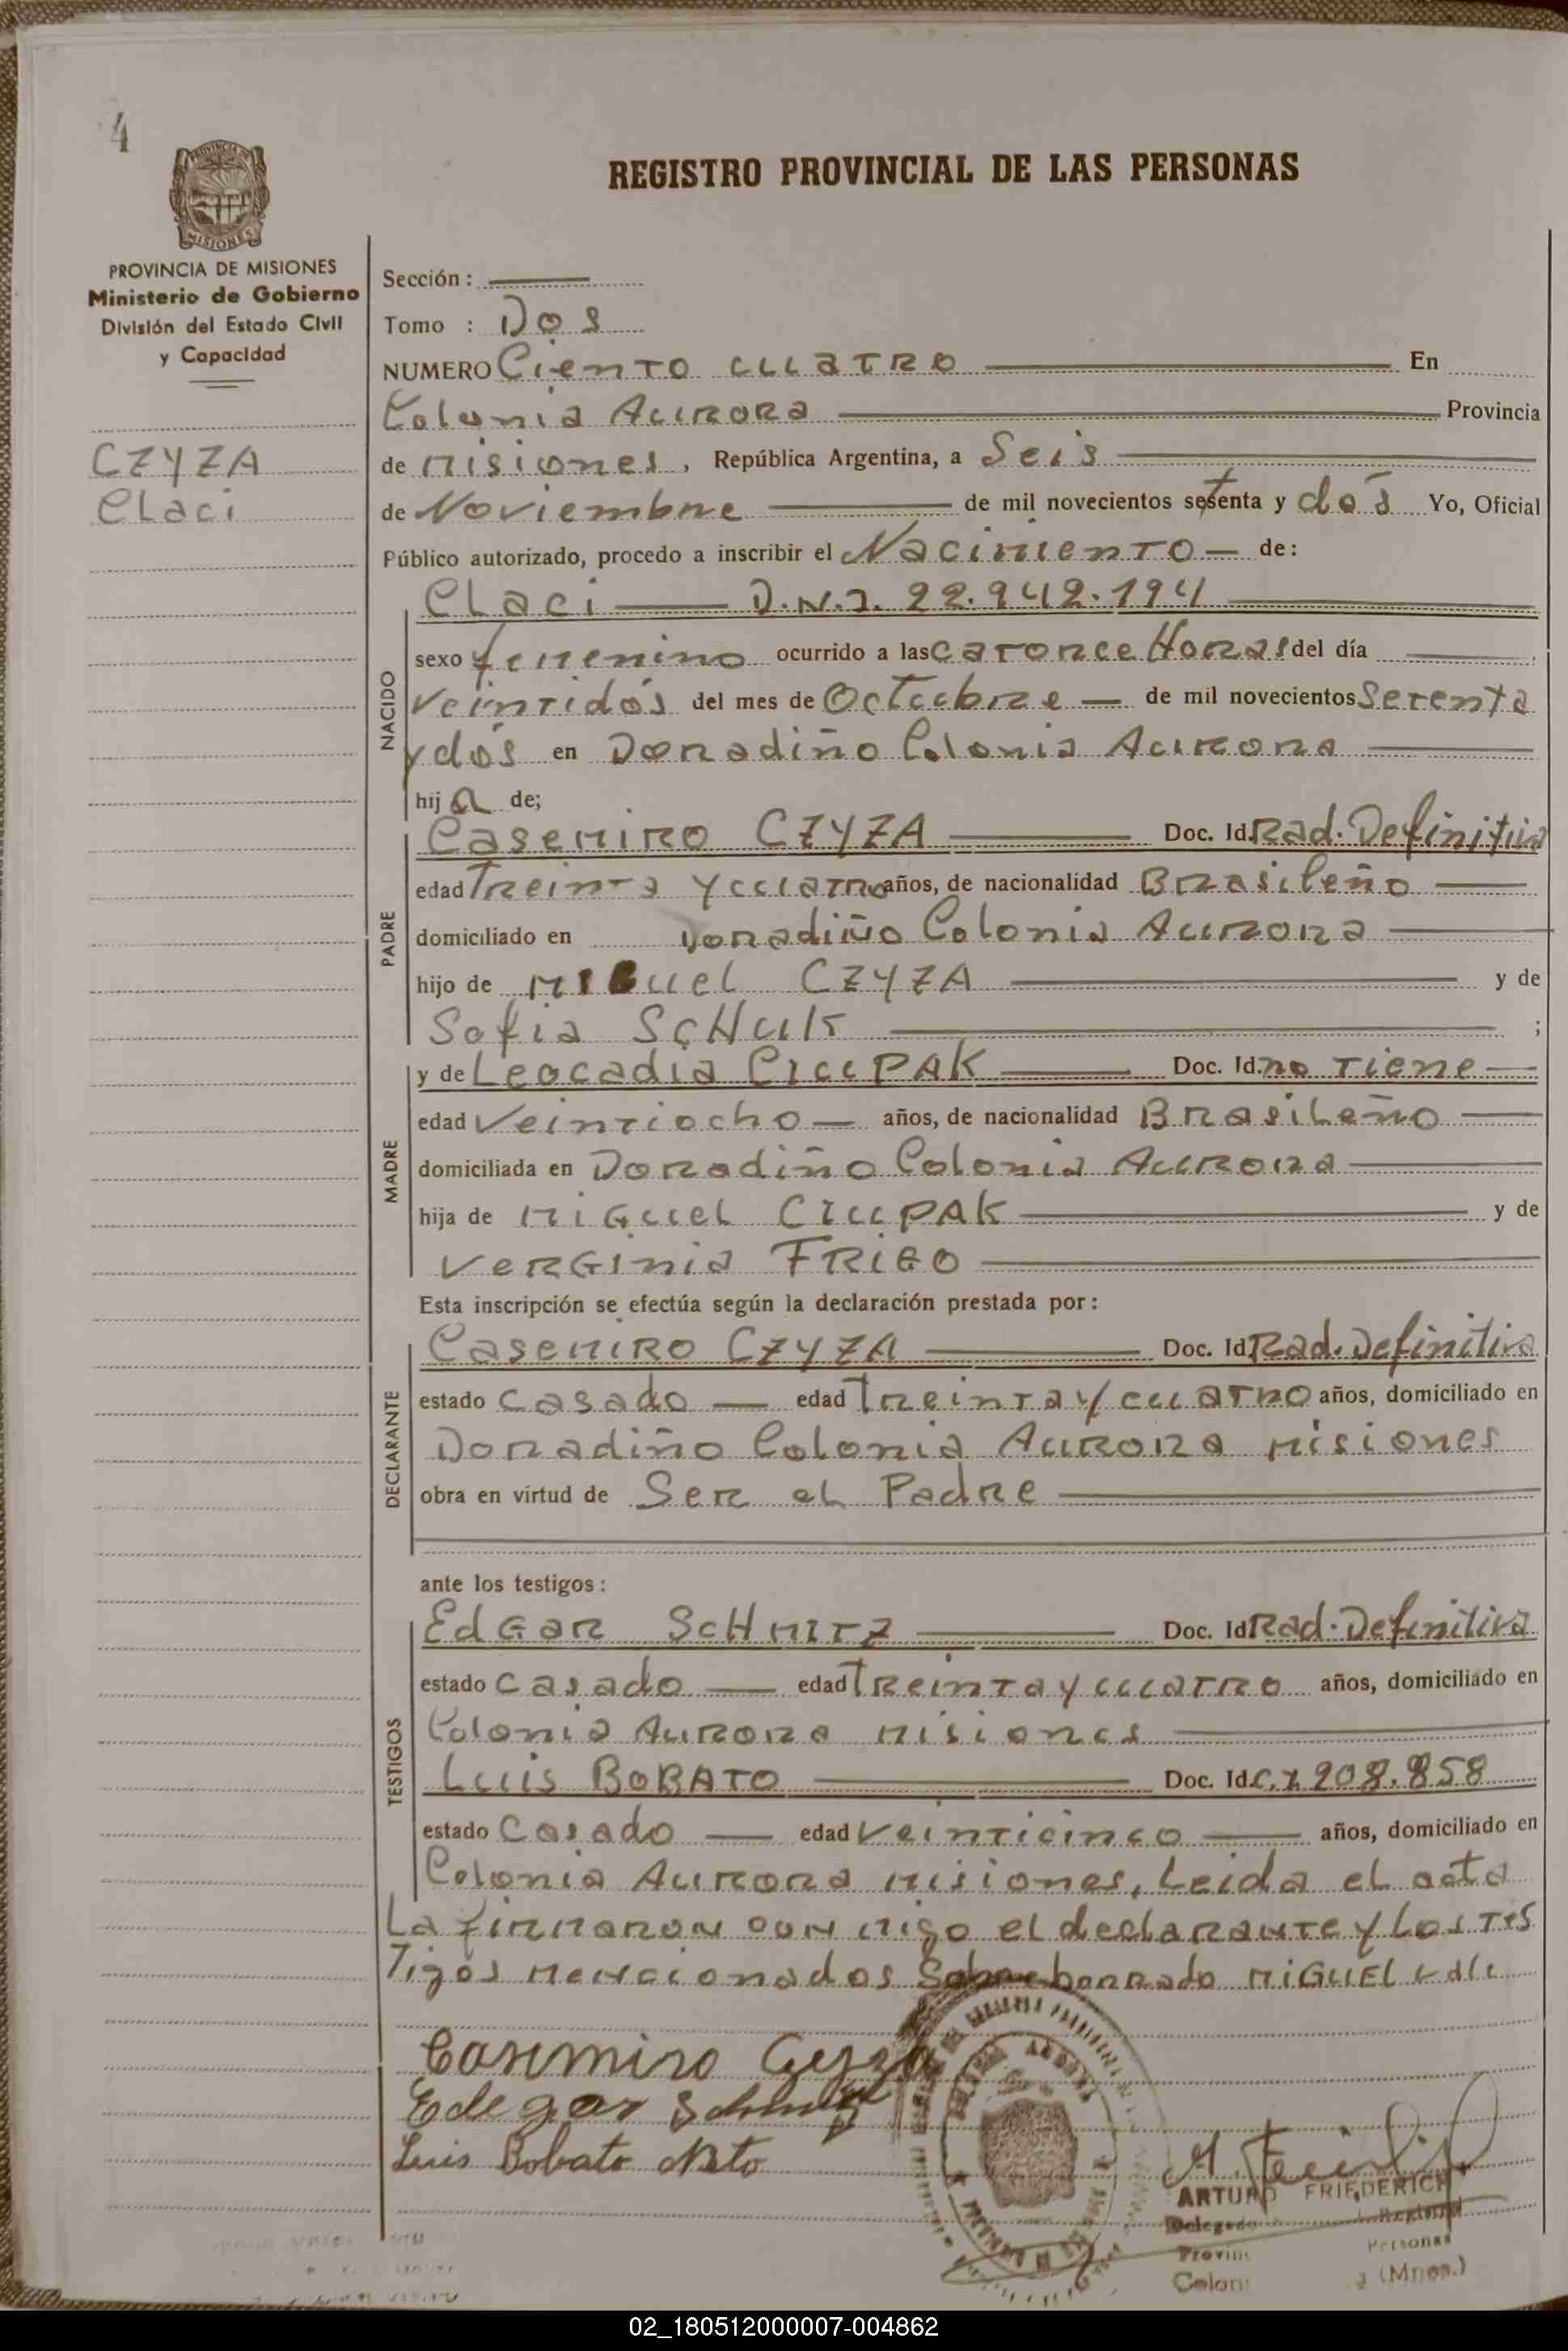 4
PROVINCIA DE
MISIONES
REGISTRO PROVINCIAL DE LAS PERSONAS
PROVINCIA DE MISIONES
Ministerio de Gobierno
División del Estado Civil
y Capacidad
CZYZA
CLaci
Sección :
Tomo : Dos
NUMERO Ciento cuatro En
Colonia Aurora Provincia
de Misiones, República Argentina, a Seis
de Noviembre de mil novecientos setenta y dos Yo, Oficial
Público autorizado, procedo a inscribir el Nacimiento de:
CLaci D.N.I. 22.942.194
sexo femenino ocurrido a las catorce Horas del día
veintidós del mes de Octubre de mil novecientos Setenta
y dós en Doradiño Colonia Aurora
hij a de;
NACIDO
Casemiro CZYZA Doc. Id. Rad. Definitiva
edad Treinta y cuatro años, de nacionalidad Brasileño
domiciliado en Doradiño Colonia Aurora
hijo de Miguel CZYZA y de
Sofia ScHuk ;
PADRE
y de Leocadia CIUPAK Doc. Id. no Tiene
edad Veintiocho años, de nacionalidad Brasileño
domiciliada en Doradiño Colonia Aurora
hija de MiGuel CIUPAK y de
VerGinia FRiGO
MADRE
Esta inscripción se efectúa según la declaración prestada por:
Casemiro CZYZA Doc. Id. Rad. Definitiva
estado Casado edad Treinta y cuatro años, domiciliado en
Doradiño Colonia Aurora Misiones
obra en virtud de Ser el Padre
DECLARANTE
ante los testigos:
EdGar ScHMITZ Doc. Id. Rad. Definitiva
estado Casado edad Treinta y cuatro años, domiciliado en
Colonia Aurora Misiones
Luis BOBATO Doc. Id. 208.858
estado Casado edad Veinticinco años, domiciliado en
Colonia Aurora Misiones, Leida el acta
La firmaron con migo el declarante y Los Tes
Tigos Mencionados Sobreborrado MiGUEL vale
TESTIGOS
Casemiro Czyza
Edegar Schmitz
Luis Bobato Neto
ARTURO FRIEDERICH
Delegado Regional
Personas
(Mnes.)
02_180512000007-004862